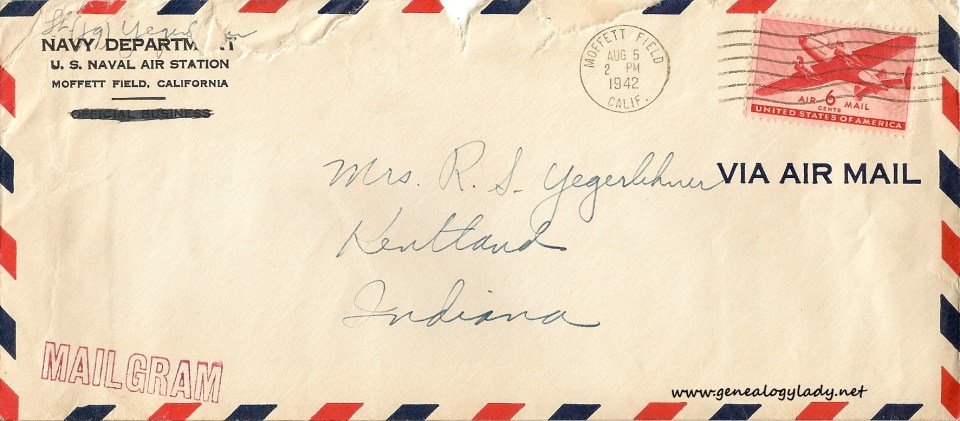 Lt (jg) Yegerlehner
NAVY DEPARTMENT
U. S. NAVAL AIR STATION
MOFFETT FIELD, CALIFORNIA
OFFICIAL BUSINESS
MOFFETT FIELD
AUG 5
2 PM
1942
CALIF.
AIR 6 MAIL
CENTS
UNITED STATES OF AMERICA
VIA AIR MAIL
Mrs. R. S. Yegerlehner
Kentland
Indiana
MAILGRAM
www.genealogylady.net